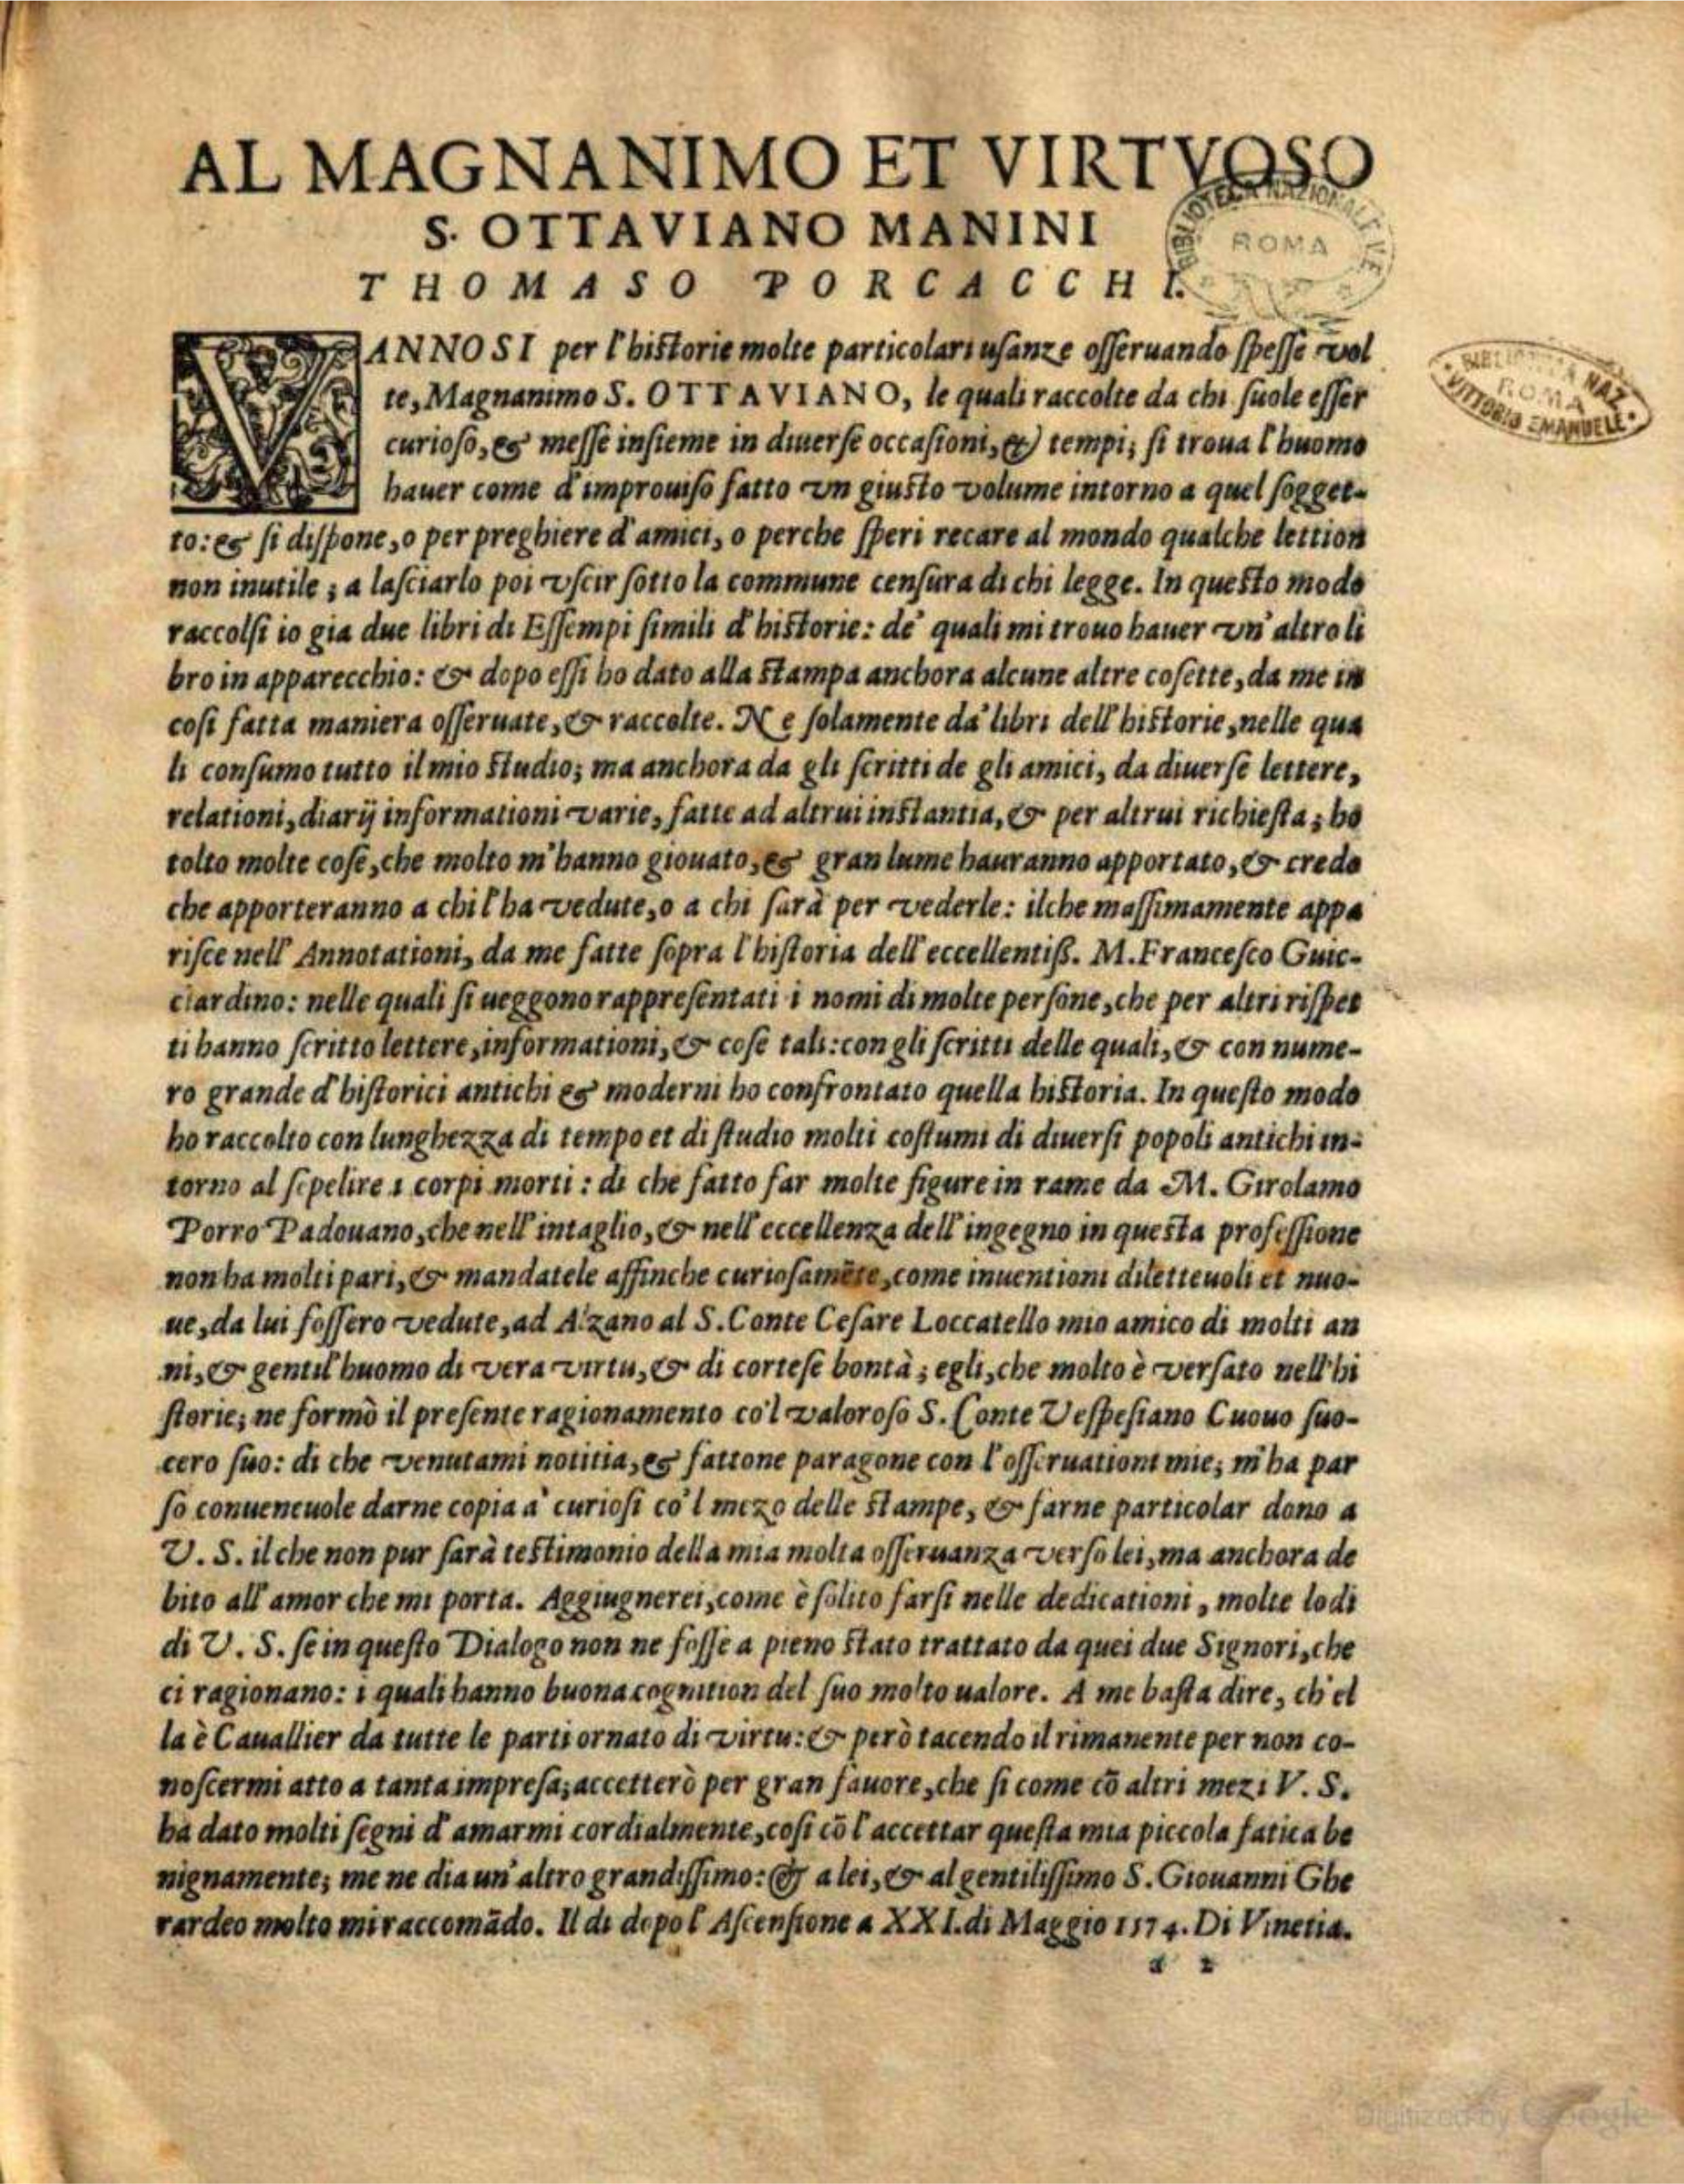 AL MAGNANIMO ET VIRTVOSO
S. OTTAVIANO MANINI
THOMASO PORCACCHI.
BIBLIOTECA NAZIONALE V.E
ROMA
VANNOSI per l'historie molte particolari usanze osseruando spesse vol
te, Magnanimo S. OTTAVIANO, le quali raccolte da chi suole esser
curioso, & messe insieme in diuerse occasioni, & tempi; si troua l'huomo
hauer come d'improuiso fatto vn giusto volume intorno a quel sogget-
to: & si dispone, o per preghiere d'amici, o perche speri recare al mondo qualche lettion
non inutile; a lasciarlo poi vscir sotto la commune censura di chi legge. In questo modo
raccolsi io gia due libri di Essempi simili d'historie: de' quali mi trouo hauer vn'altro li
bro in apparecchio: & dopo essi ho dato alla stampa anchora alcune altre cosette, da me in
cosi fatta maniera osseruate, & raccolte. Ne solamente da' libri dell'historie, nelle qua
li consumo tutto il mio studio; ma anchora da gli scritti de gli amici, da diuerse lettere,
relationi, diarij informationi varie, fatte ad altrui instantia, & per altrui richiesta; ho
tolto molte cose, che molto m'hanno giouato, & gran lume hauranno apportato, & credo
che apporteranno a chi l'ha vedute, o a chi sarà per vederle: ilche massimamente appa
risce nell'Annotationi, da me fatte sopra l'historia dell'eccellentiß. M. Francesco Guic-
ciardino: nelle quali si ueggono rappresentati i nomi di molte persone, che per altri rispet
ti hanno scritto lettere, informationi, & cose tali: con gli scritti delle quali, & con nume-
ro grande d'historici antichi & moderni ho confrontato quella historia. In questo modo
ho raccolto con lunghezza di tempo et di studio molti costumi di diuersi popoli antichi in-
torno al sepelire i corpi morti: di che fatto far molte figure in rame da M. Girolamo
Porro Padouano, che nell'intaglio, & nell'eccellenza dell'ingegno in questa professione
non ha molti pari, & mandatele affinche curiosamēte, come inuentioni diletteuoli et nuo-
ue, da lui fossero vedute, ad Alzano al S. Conte Cesare Loccatello mio amico di molti an
ni, & gentil'huomo di vera virtu, & di cortese bontà; egli, che molto è versato nell'hi
storie; ne formò il presente ragionamento co'l valoroso S. Conte Vespesiano Cuouo suo-
cero suo: di che venutami notitia, & fattone paragone con l'osseruationi mie; m'ha par
so conueneuole darne copia a' curiosi co'l mezo delle stampe, & farne particolar dono a
V. S. ilche non pur sarà testimonio della mia molta osseruanza verso lei, ma anchora de
bito all'amor che mi porta. Aggiugnerei, come è solito farsi nelle dedicationi, molte lodi
di V. S. se in questo Dialogo non ne fosse a pieno stato trattato da quei due Signori, che
ci ragionano: i quali hanno buona cognition del suo molto ualore. A me basta dire, ch'el
la è Cauallier da tutte le parti ornato di virtu: & però tacendo il rimanente per non co-
noscermi atto a tanta impresa; accetterò per gran fauore, che si come cō altri mezi V. S.
ha dato molti segni d'amarmi cordialmente, cosi cō l'accettar questa mia piccola fatica be
nignamente; me ne dia un'altro grandissimo: & a lei, & al gentilissimo S. Giouanni Ghe
rardeo molto mi raccomādo. Il di dopo l'Ascensione a XXI. di Maggio 1574. Di Vinetia.
a 2
BIBLIOTECA NAZ.
ROMA
VITTORIO EMANUELE
Digitized by Google